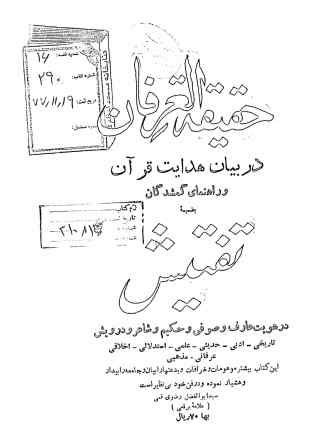 شماره قفسه: ۱۶
شماره کتاب: ۲۹۰
تاریخ ثبت: ۷۷/۱۱/۱۹
حقیقة العرفان
در بیان هدایت قرآن
و راهنمای گمشدگان
بضمیمهٔ
نام کتاب
تفتیش
در هویت عارف و صوفی و حکیم و شاعر و درویش
تاریخی - ادبی - حدیثی - علمی - استدلالی - اخلاقی
عرفانی - مذهبی
این کتاب بیشتر موهومات و خرافات و بدعتها را بیان و جامعه را بیدار
و هشیار نموده و در فن خود بی نظیر است
سید ابوالفضل رضوی قمی
( علامهٔ برقعی )
بها ۷۰ ریال